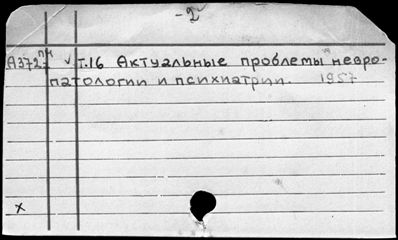 -2
пн
А3727 √ Т.16 Актуальные проблемы невро-
патологии и психиатрии. 1957
х